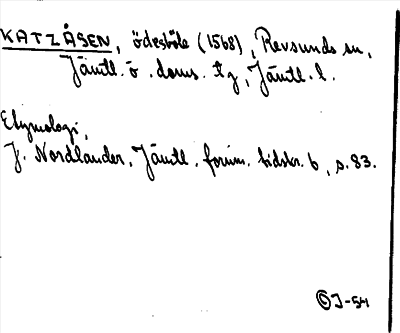 KATZÅSEN, ödesböle (1568), Revsunds sn,
Jämtl. ö. doms. tg, Jämtl. l.
Etymologi,
J. Nordlander, Jämtl. fornm. tidskr. 6, s. 83.
©J-54